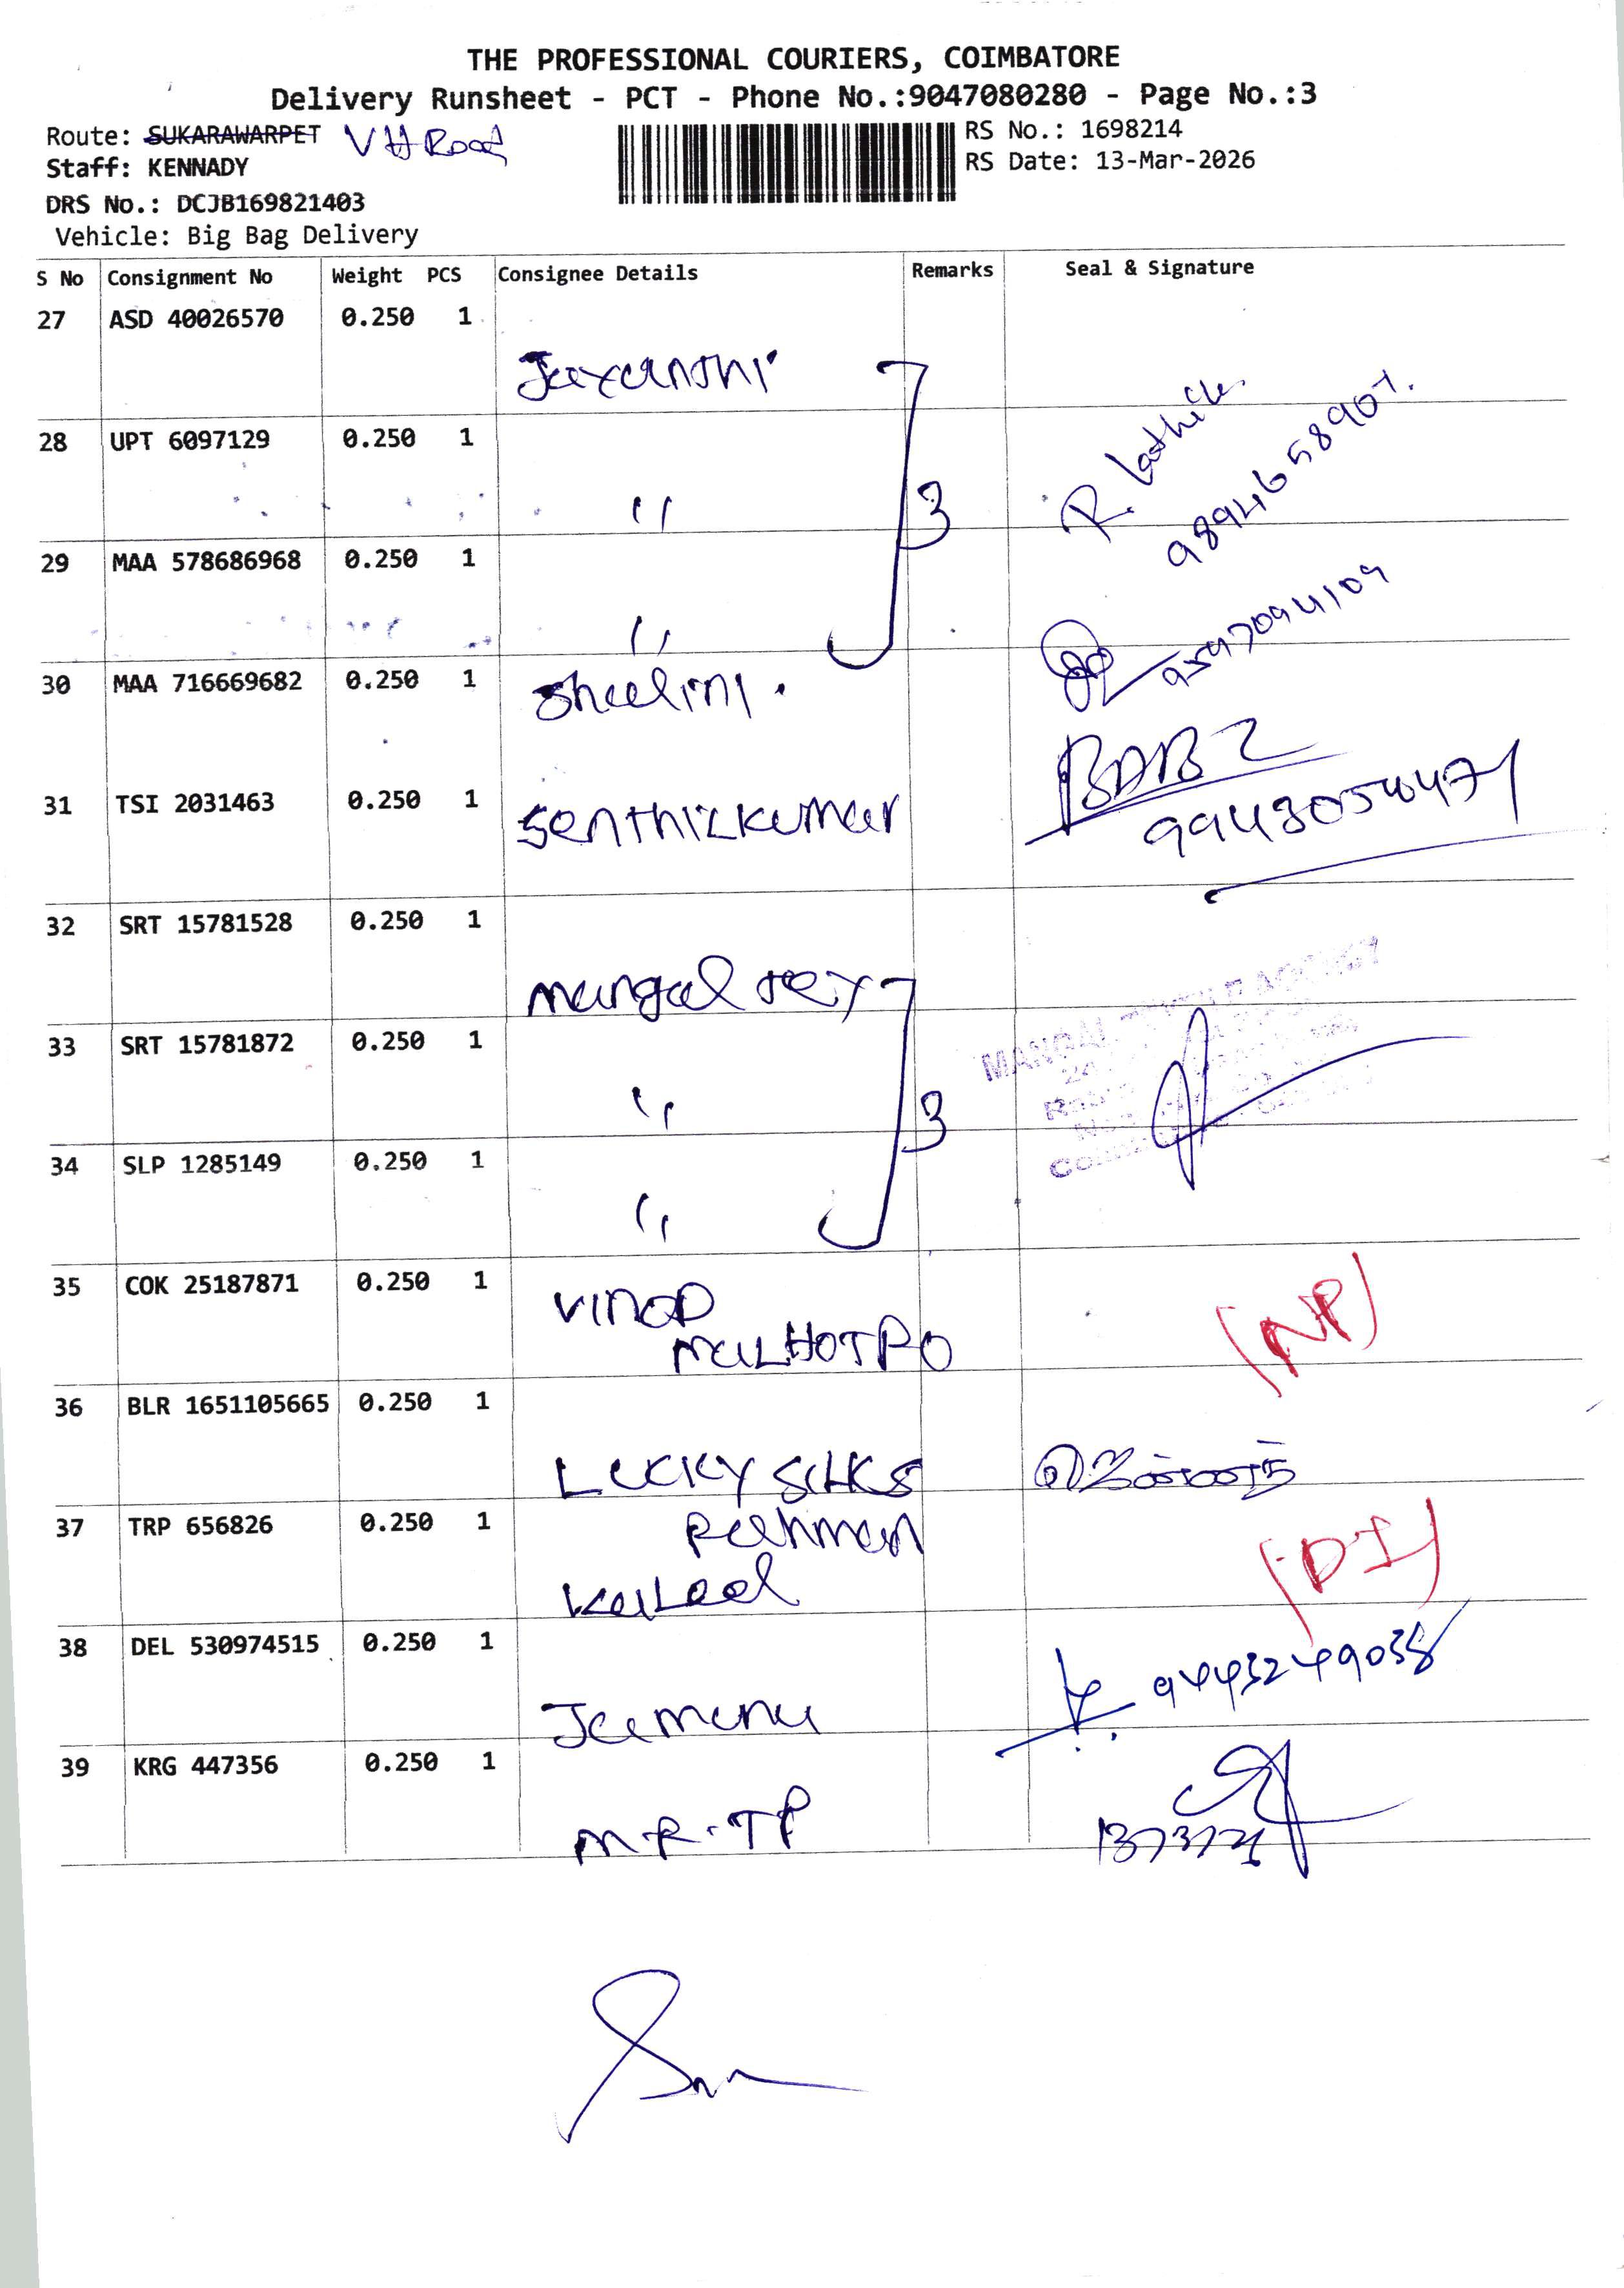 THE PROFESSIONAL COURIERS, COIMBATORE
Delivery Runsheet - PCT - Phone No.:9047080280 - Page No.:3
Route: SUKARAWARPET VH Road
Staff: KENNADY
DRS No.: DCJB169821403
Vehicle: Big Bag Delivery
RS No.: 1698214
RS Date: 13-Mar-2026
S No Consignment No Weight PCS Consignee Details Remarks Seal & Signature
27 ASD 40026570 0.250 1 Jayanthi
28 UPT 6097129 0.250 1 " 3 R. Lathika
9894658907.
29 MAA 578686968 0.250 1 "
30 MAA 716669682 0.250 1 Shalini. 9597094109
31 TSI 2031463 0.250 1 Senthilkumar
9943054047
32 SRT 15781528 0.250 1 Mangal Tex
33 SRT 15781872 0.250 1 " 3 MANGAL
34 SLP 1285149 0.250 1 "
35 COK 25187871 0.250 1 VINOD
MALHOTRA (NP)
36 BLR 1651105665 0.250 1 LUCKY SILKS
37 TRP 656826 0.250 1 Rahman
Kaleel (DI)
38 DEL 530974515 0.250 1 Jamuna 9443249038
39 KRG 447356 0.250 1 MR.TP